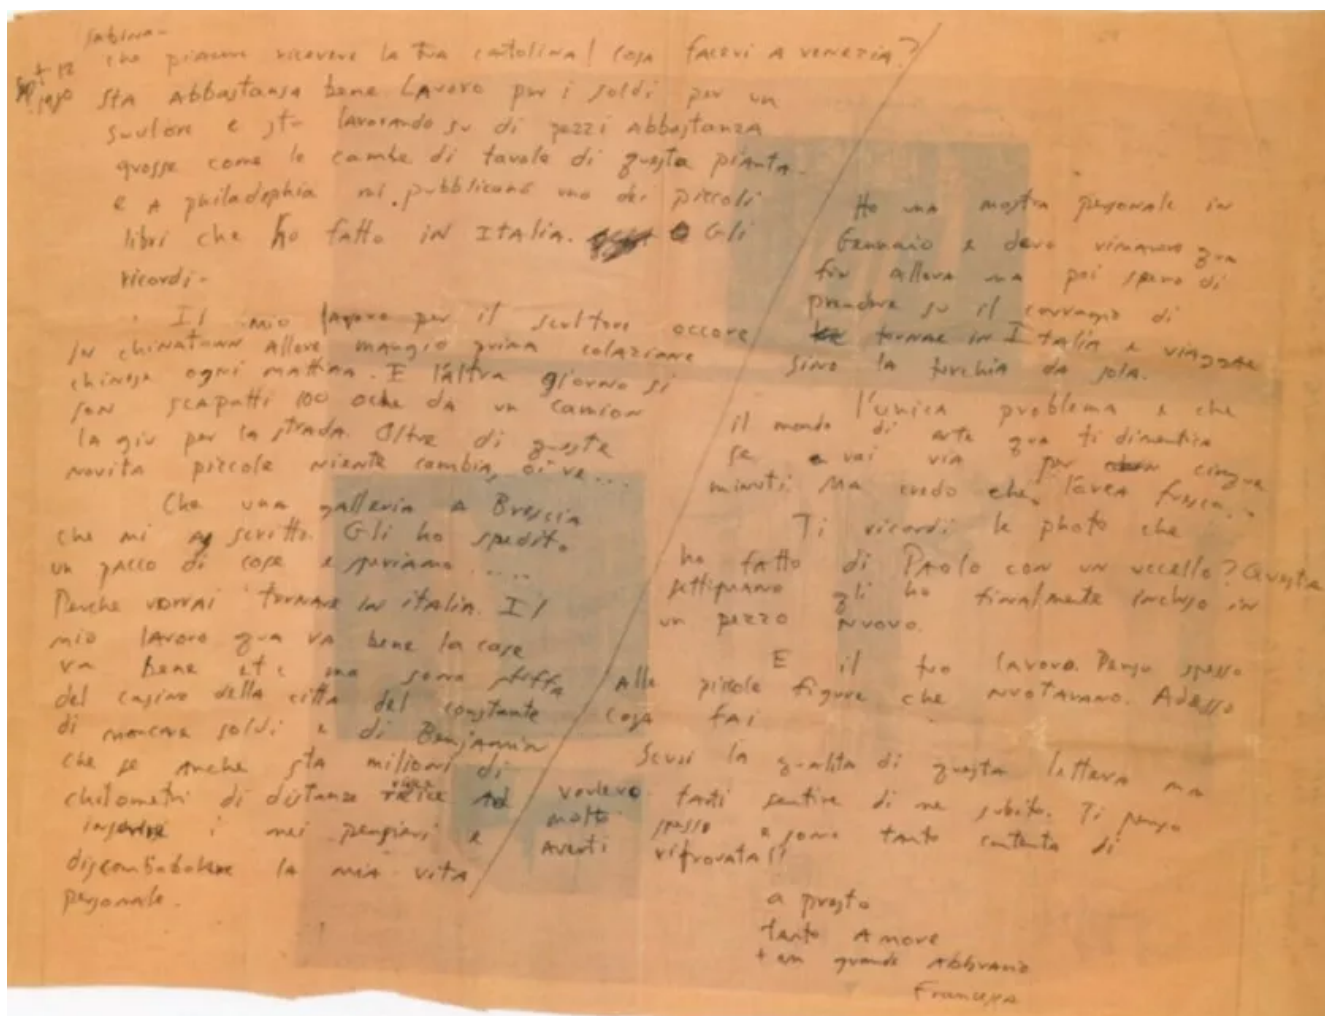 Sabina -
Sept 12
1980
che piacere ricevere la tua catolina! Cosa facevi a venezia?
Sta Abbastansa bene Lavoro per i soldi per un
e sto lavorando su di pezzi Abbastanza
grosse come le cambe di tavole di questa pianta.
e A philadephia mi pubblicano uno dei piccoli
libri che ho fatto in ITAlia. Gli
ricordi -
Il mio lavoro per il scultore occore
in chinatown Allora mangio prima colazione
chinese ogni mattina. E l'altra giorno si
son scapatti 100 oche da un camion
la giu per la strada. Oltre di queste
novita piccole niente cambia, oi ve...
Che una galleria a Brescia
che mi A scritto. Gli ho spedito
un pacco di cose e speriamo .....
Perche vorrai tornare in italia. Il
mio lavoro qua va bene la case
va bene etc ma sono stuffa
del casino della citta del constante
di mancare soldi e di Benjamin
che se anche sta milioni di
chilometri di distanza riesce ad
inserire i mei pensieri e
discombobolare la mia vita
personale.
Ho una mostra personale in
Gennaio e devo rimanere qua
fin allora ma poi spero di
prendere su il corragio di
tornae in Italia e viaggae
sino la turchia da sola.
l'unica problema e che
il mondo di arte qua ti dimentica
se vai via per cinque
minuti. Ma credo che l'area fresca...
Ti ricordi le photo che
ho fatto di Paolo con un uccello? Questa
settimano gli ho finalmente incluso in
un pezzo nuovo.
E il tuo lavoro. Penso spesso
Alle piccole figure che nuotavano. Adesso
cosa fai
Scusi la qualita di questa lettera ma
vovlevo farti sentire di me subito. Ti penso
molto spesso e sono tanto contenta di
averti rifrovata!!
a presto
tanto Amore
+ un grande Abbracio
Francesca